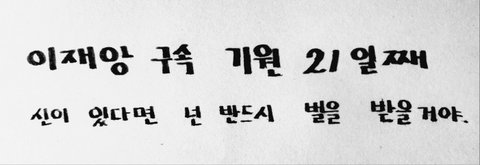 이재앙 구속 기원 21일째
신이 있다면 넌 반드시 벌을 받을거야.